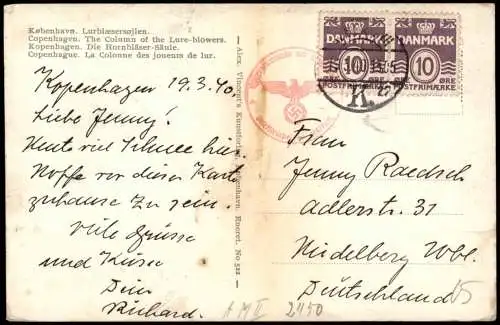 København. Lurblæsersøjlen.
Copenhagen. The Column of the Lure-blowers.
Kopenhagen. Die Hornbläser-Säule.
Copenhague. La Colonne des joeurs de lur.
Kopenhagen 19.3.40.
Liebe Jenny!
Heute viel Schnee hier.
Hoffe vor dieser Karte
zuhause zu sein.
Viele Grüsse
und Küsse
Dein
Richard.
Alex. Vincent's Kunstforlag, København. Eneret. No 512
DANMARK
10 ØRE
POSTFRIMÆRKE
DANMARK
10 ØRE
POSTFRIMÆRKE
K.
Frau
Jenny Raedsch
Adlerstr. 31
Heidelberg Wbl.
Deutschland